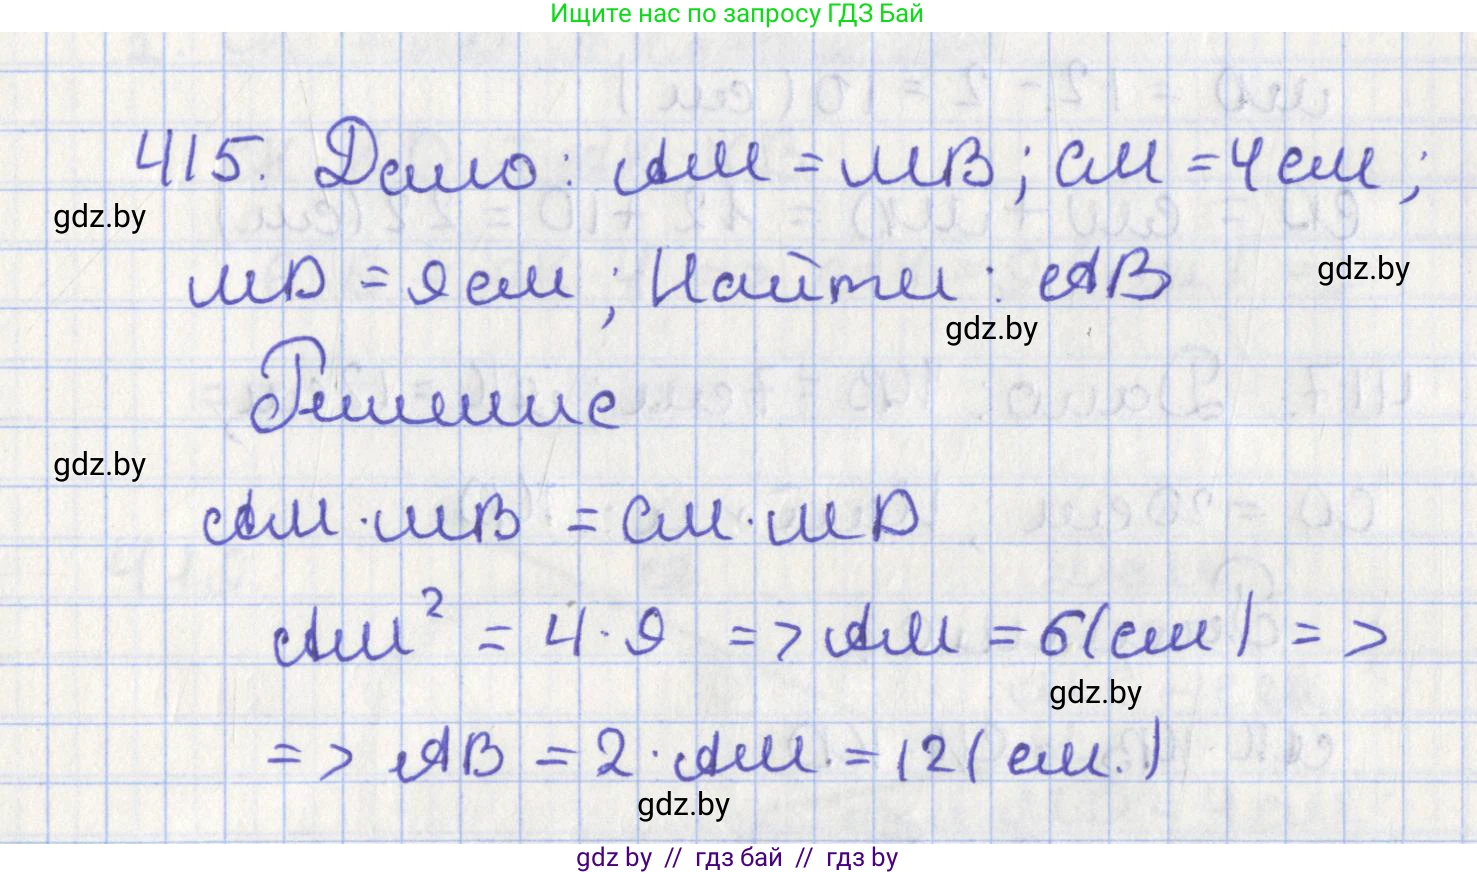 Ищите нас по запросу ГДЗ Бай
415. Дано: AM = MB; CM = 4 см;
gdz.by
MD = 9 см; Найти: AB
gdz.by
gdz.by
Решение
gdz.by
AM · MB = CM · MD
AM² = 4 · 9 => AM = 6 (см) =>
gdz.by
=> AB = 2 · AM = 12 (см.)
gdz.by
gdz by // гдз бай // гдз by